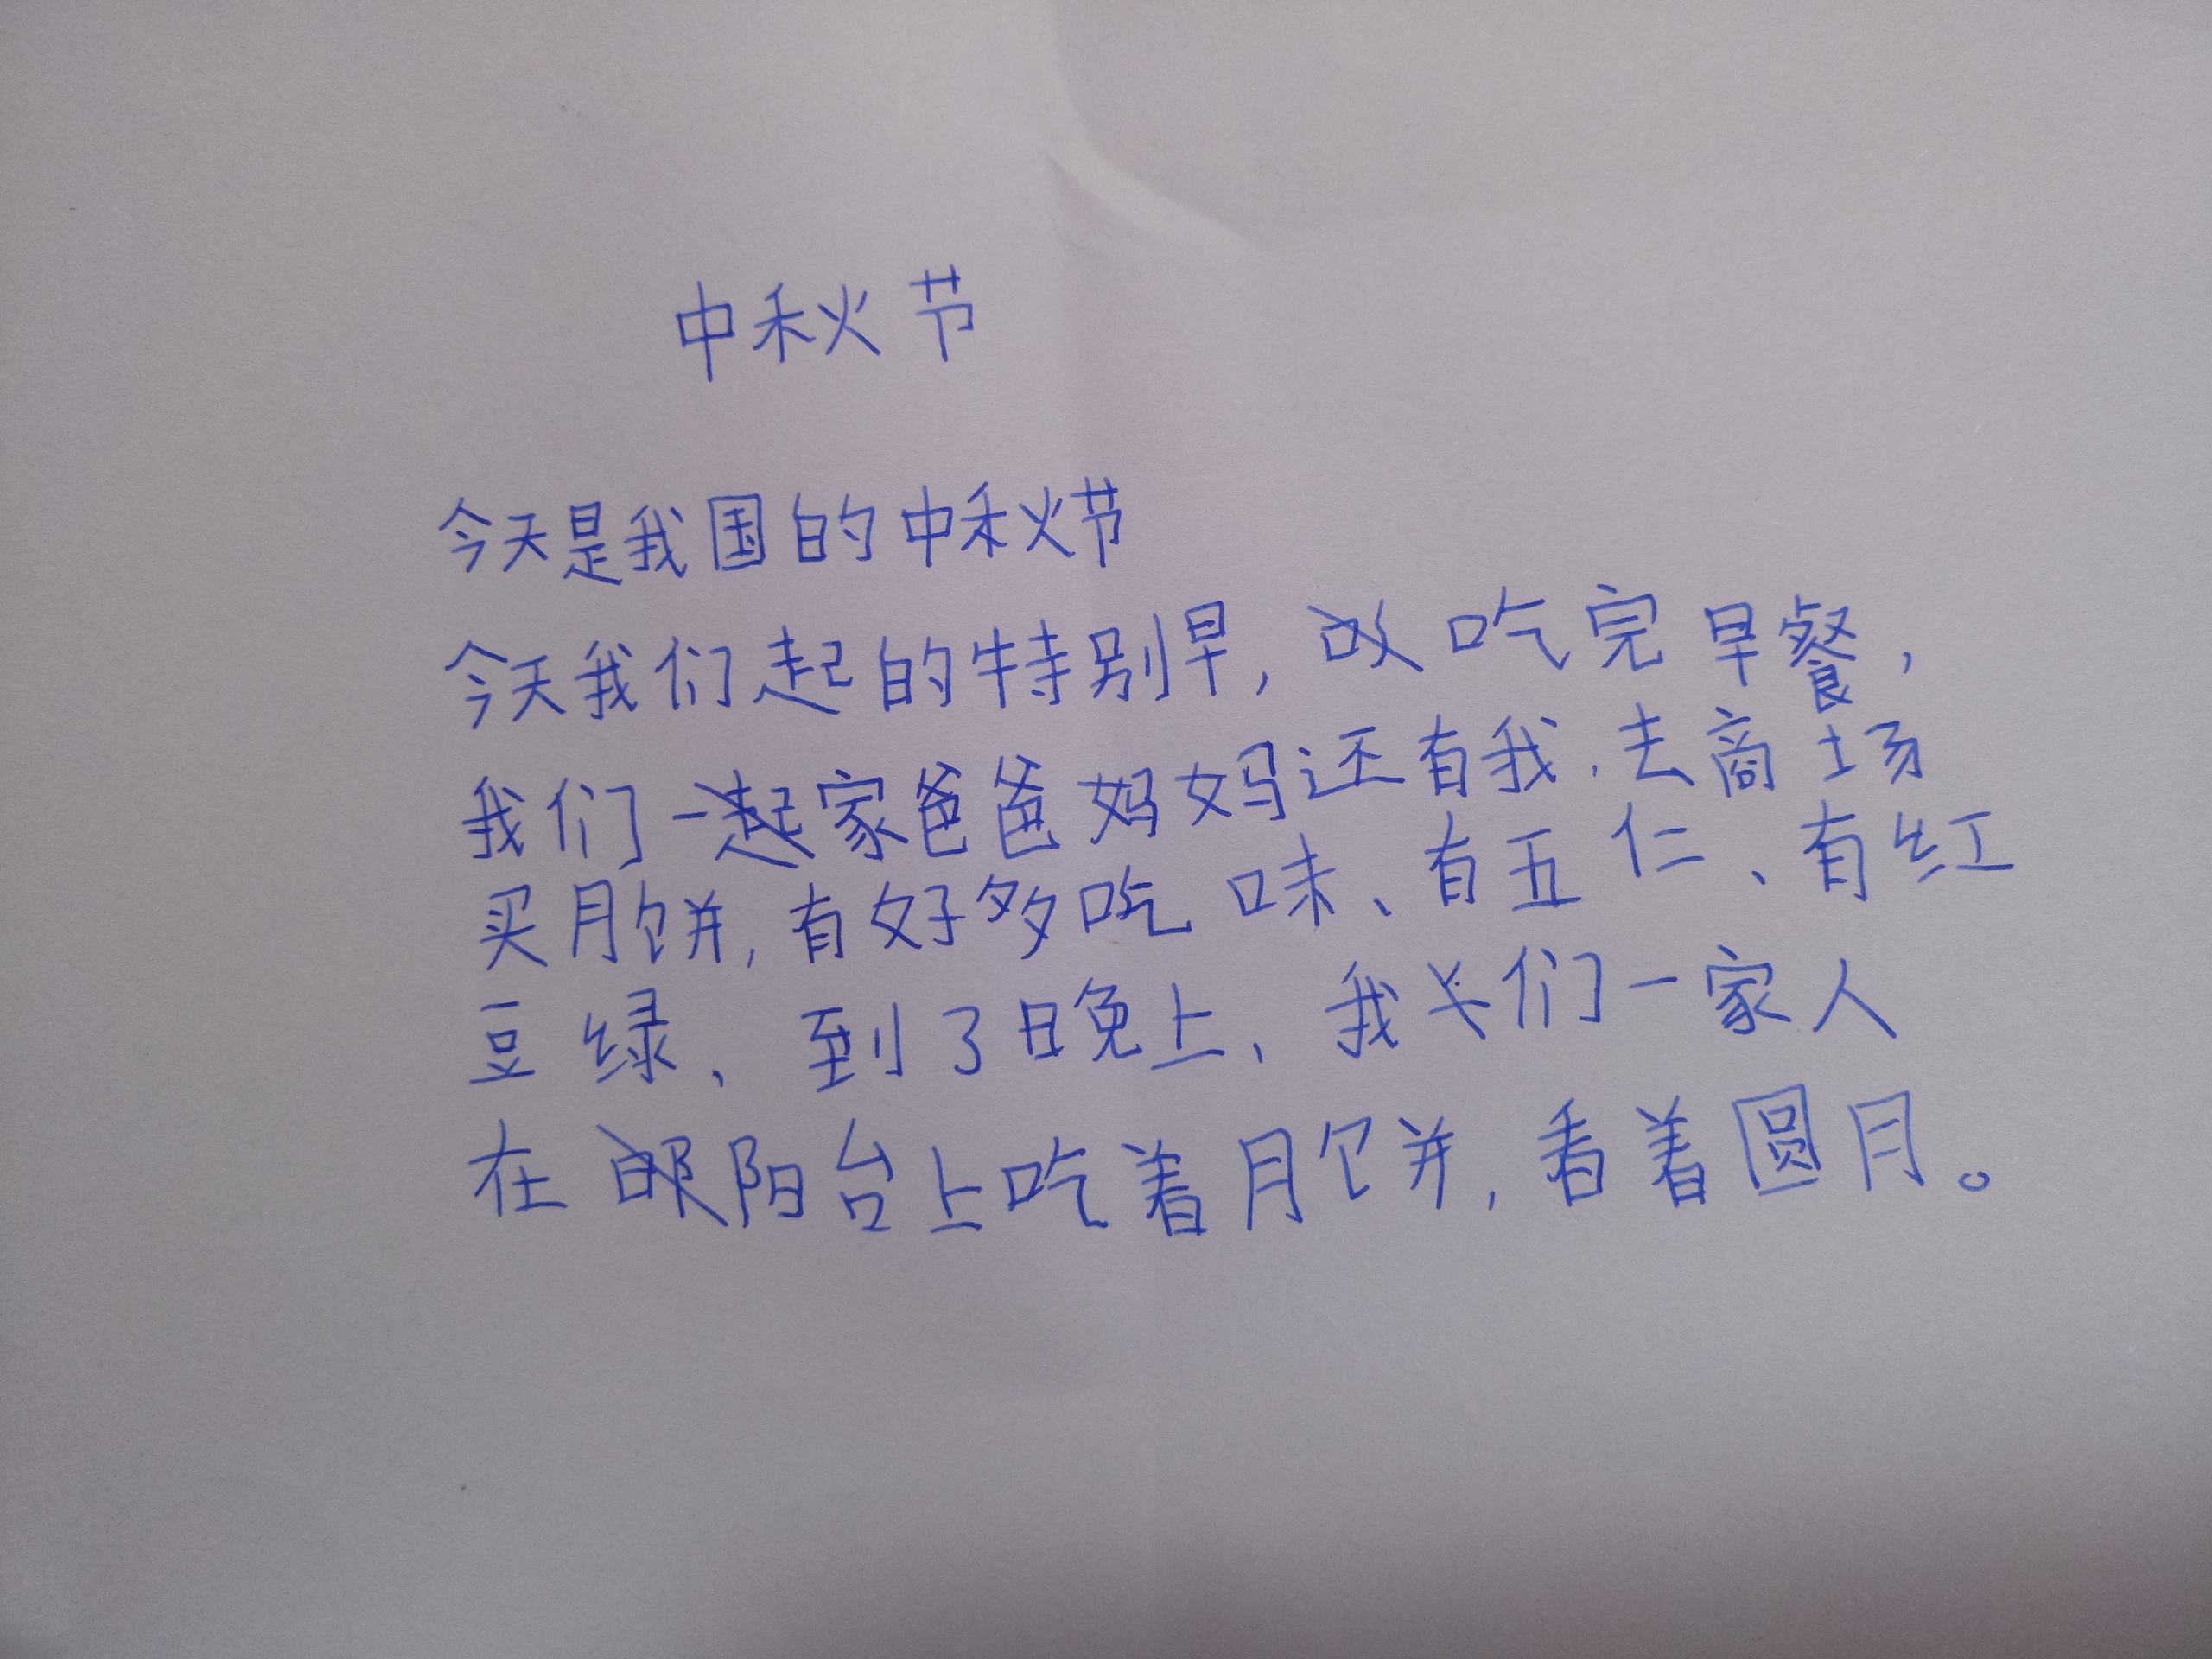 中秋节
今天是我国的中秋节
今天我们起的特别早，吃完早餐，
我们一家爸爸妈妈还有我，去商场
买月饼，有好多吃味、有五仁、有红
豆绿、到了晚上、我们一家人
在阳台上吃着月饼，看着圆月。